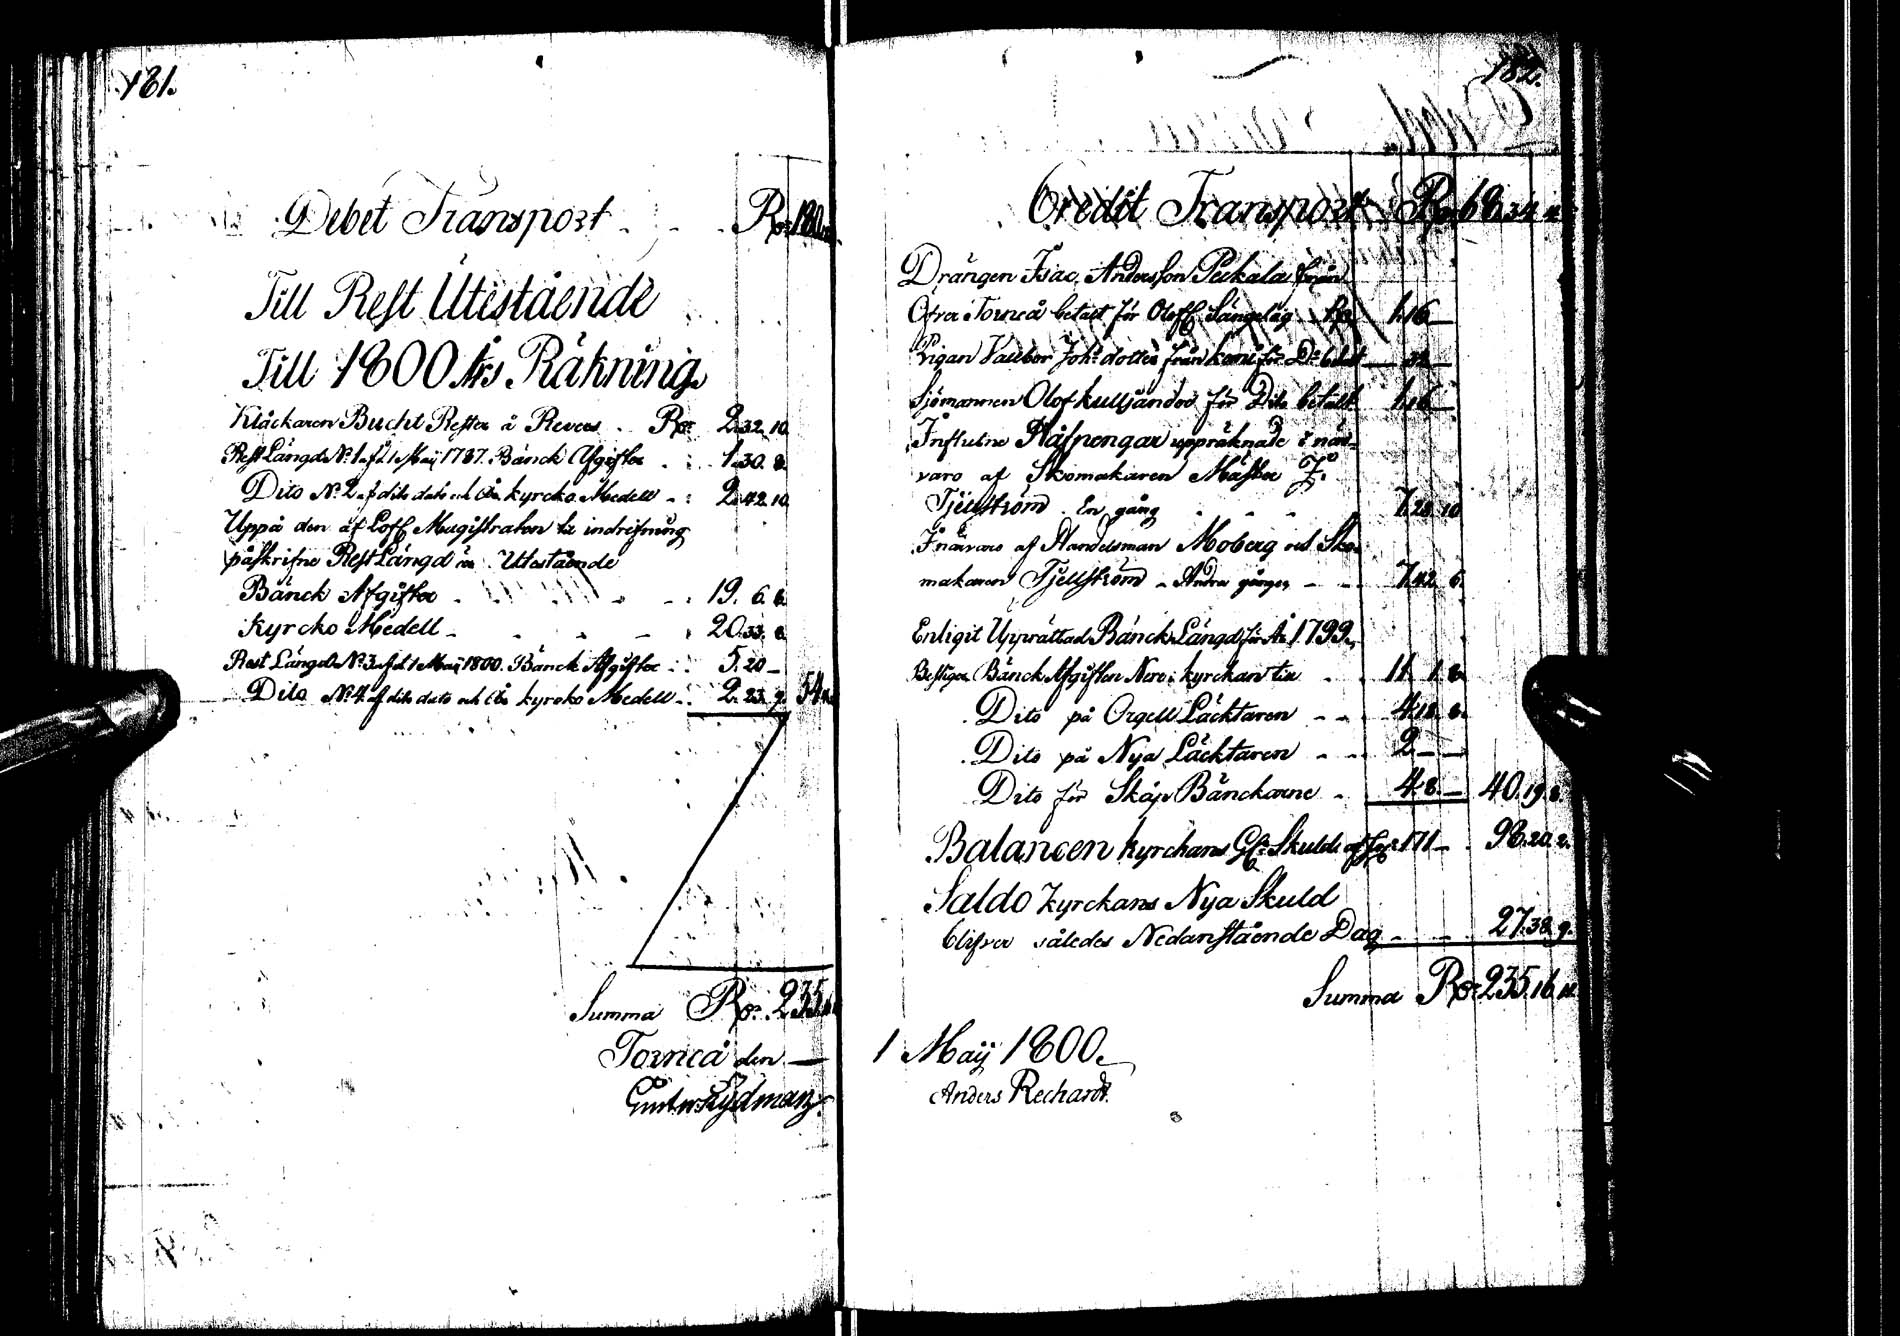 181.
Debet Transport - - - Rdr 180
Till Rest Utestående
Till 1800 Års Räkning
Klåckaren Bucht Rester å Revers - Rdr 2.32.10.
Rest Längd N:o 1 af d. 1 Maij 1787. Bänck Afgifter - 1.30.8.
Dito N:o 2 af dito dato och År kyrcko Medell - 2.42.10.
Uppå den af Loff. Magistraten til indrifning
påskrifne Rest Längd är Utestående
Bänck Afgifter - - - 19. 6. 6.
Kyrcko Medell - - - 20.33. 8.
Rest Längd N:o 3 af d. 1 Maij 1800. Bänck Afgifter - 5.20 -
Dito N:o 4 af dito dato och År kyrcko Medell - 2.23.9. 54
Summa Rdr 235.16
Torneå den —
Gustav Rydman
182.
Credit Transport Rdr 68.34.
Drängen Isac Andersson Peckala från
Öfra Torneå betalt för Oloff Sängelag Rdr 1.16 —
Pigan Vallbor Joh:s dotter från kemi för D:o betalt — 32 —
Sjömannen Olof kulljändio för Dito betalt 1.16 —
Influtne Håfpengar uppräknade i när-
varo af Skomakaren Mäster Z.
Tjellström En gång - - - 7.28.10
I närvaro af Handelsman Moberg och Sko-
makaren Tjellström - Andra gången - - 7.42.6.
Enligit Upprättad Bänck Längd för År 1799.
Bestiger Bänck Afgiften Nere i kyrckan till - - 11. 1. 8.
Dito på Orgell Läcktaren - - 4.18. 8.
Dito på Nya Läcktaren - - 2 — —
Dito för Skåp Bänckarne - 4.8. — 40.19.8.
Balancen kyrckans Skuld af 171 - 98.20.2.
Saldo kyrckans Nya Skuld
blifver således Nedanstående Dag - - 27.38.9.
Summa Rdr 235.16.
1 Maij 1800.
Anders Rechardt.